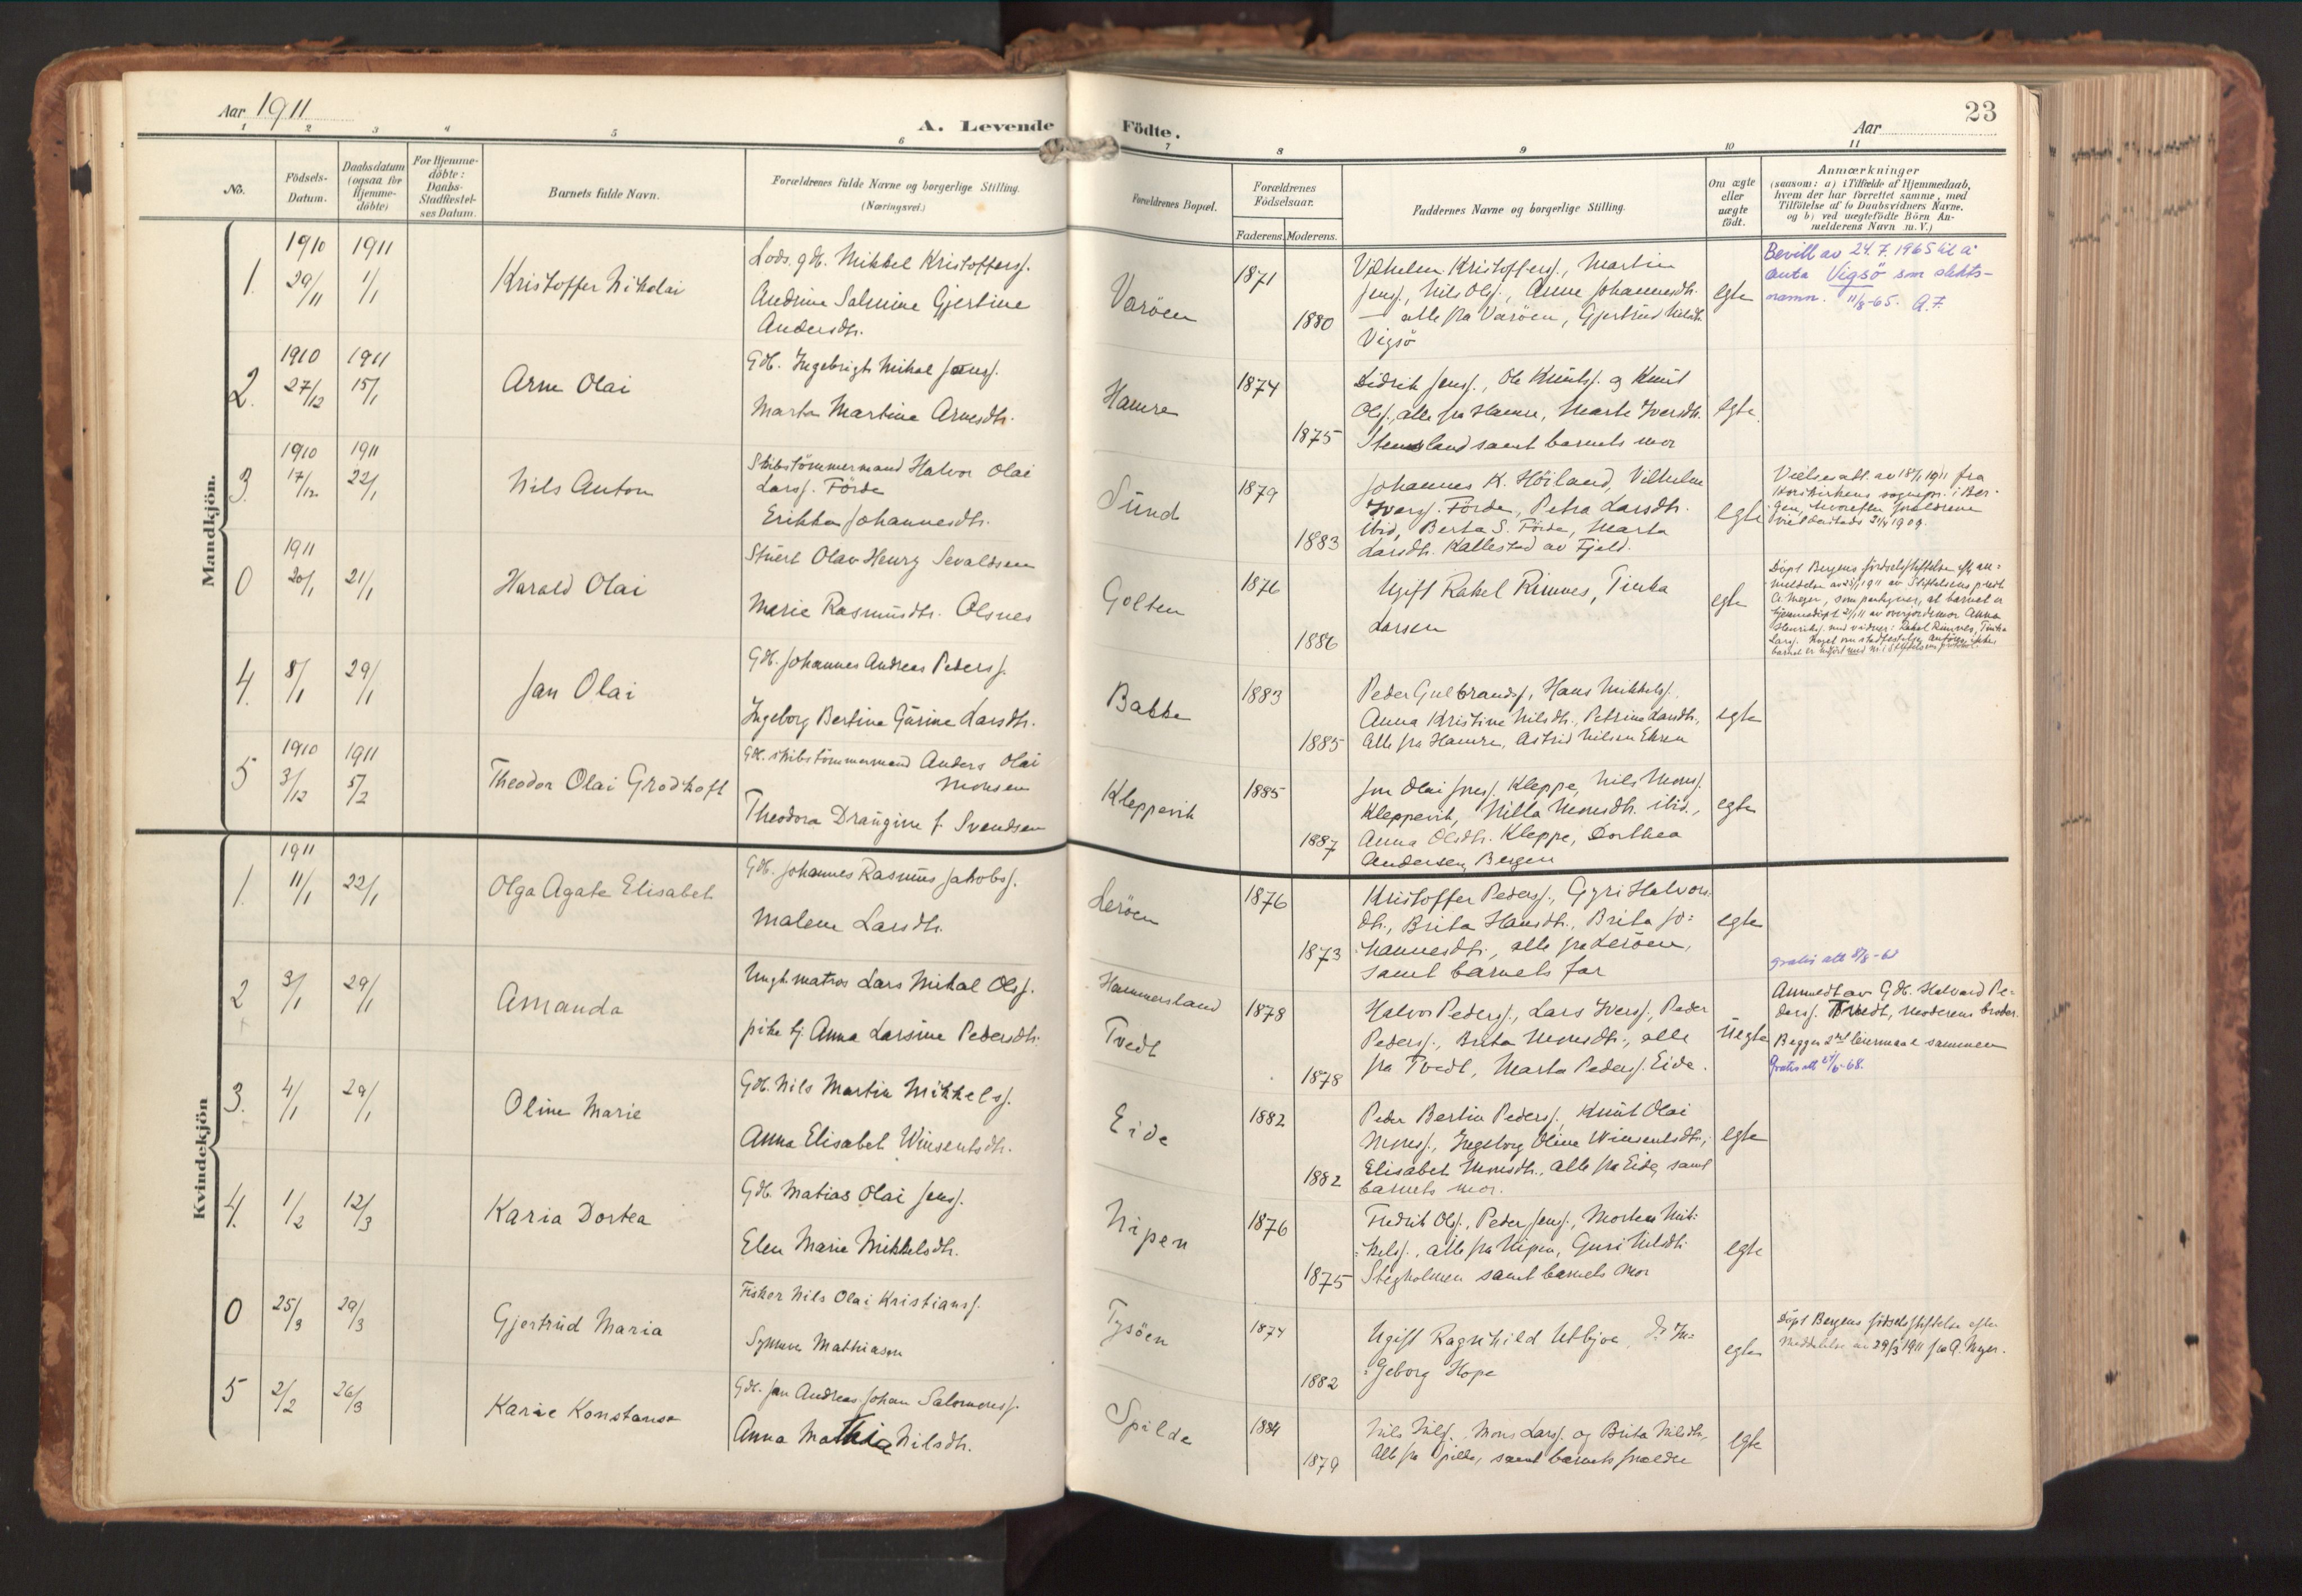 Aar 1911
A. Levende Födte.
Aar
23
1 2 3 4 5 6 7 8 9 10 11
No.
Födsels-
Datum.
Daabsdatum
(ogsaa for
Hjemme-
döbte)
For Hjemme-
döbte:
Daabs-
Stadfæstel-
ses Datum.
Barnets fulde Navn.
Forældrenes fulde Navne og borgerlige Stilling.
(Næringsvei.)
Forældrenes Bopæl.
Forældrenes
Födselsaar.
Faderens. Moderens.
Faddernes Navne og borgerlige Stilling.
Om ægte
eller
uægte
født.
Anmærkninger
(saasom: a) i Tilfælde af Hjemmedaab,
hvem der har forrettet samme, med
Tilföielse af to Daabsvidners Navne.
og b) ved uægtefödte Börn An-
melderens Navn m. V.)
Mandkjön.
1. 1910 29/11 1911 1/1
Kristoffer Nikolai
Lods. gdb. Mikkel Kristoffersf.
Andrine Salmine Gjertine
Andersdtr.
Varöen
1871
1880
Vilhelm Kristoffersf., Martin
Jensf., Nils Olsf., Anne Johannesdtr.
– alle fra Varöen, Gjertrud Nilsdtr.
Vigsö
egte
Bevill av 24.7.1965 til å
anta Vigsö som slekts-
namn. 11/8-65. A.F.
2. 1910 27/12 1911 15/1
Arne Olai
Gdb. Ingebrigt Mikal Jensf.
Marta Martine Arnesdtr.
Hamre
1874
1875
Didrik Jensf., Ole Knutsf. og Knut
Olsf., alle fra Hamre, Marta Iversdtr.
Stensland samt barnets mor
egte
3. 1910 17/12 1911 22/1
Nils Anton
Skibstömmermand Halvor Olai
Larsf. Förde
Erikka Johannesdtr.
Sund
1879
1883
Johannes K. Höiland, Vilhelm
Iversf. Förde, Petra Larsdtr.
ibid, Berta S. Förde, Marta
Larsdtr. Kallestad av Fjeld.
egte
Vielsesatt. av 18/1 1911 fra
Korskirkens sognepr. i Ber-
gen, hvorefter forældrene
viet 1909.
0 1911 20/1 21/1
Harald Olai
Stuert Olav Henry Sevaldsen
Marie Rasmusdtr. Olsnes
Golten
1876
1886
Ugift Rakel Rimnes, Tinka
Larsen
egte
Döpt Bergens födselsstiftelse
4. 8/1 29/1
Jan Olai
Gdb. Johannes Andreas Pedersf.
Ingeborg Bertine Gurine Larsdtr.
Bakke
1883
1885
Peder Gulbrandsf., Hans Mikkelsf.
Anna Kristine Nilsdtr., Petrine Larsdtr.,
Alle fra Hamre, Astrid Nilsen Ekren
egte
5 1910 3/12 1911 5/2
Theodor Olai Grodthoft
Gdb. skibstömmermand Anders Olai
Monsen
Theodora Draugine f. Svendsen
Kleppevik
1885
1887
Jon Olai Jonsf. Kleppe, Nils Monsf.
Kleppevik, Nilla Monsdtr. ibid.,
Anna Olsdtr. Kleppe, Dorthea
Andersen, Bergen
egte
Kvindekjön
1. 1911 11/1 22/1
Olga Agate Elisabet
Gdb. Johannes Rasmus Jakobsf.
Malene Larsdtr.
Leröen
1876
1873
Kristoffer Pedersf., Gyri Halvors-
dtr., Brita Hansdtr., Brita Jo=
hannesdtr., alle fra Leröen,
samt barnets far
egte
2 3/1 29/1
Amanda
Ungk. matros Lars Mikal Olsf.
pike tj. Anna Larsine Pedersdtr.
Hammersland
Tvedt
1878
1878
Halvor Pedersf., Lars Iversf., Peder
Pedersf., Brita Monsdtr., alle
fra Tvedt, Marta Pedersf. Eide.
Uegte
Gratis att 8/8-60
Anmeldt av Gdb. Halvard Pe-
dersf. Tvedt, Moderens broder.
Begges 2det leiermaal sammen
Gratis att -68.
3. 4/1 29/1
Oline Marie
Gdb. Nils Martin Mikkelsf.
Anna Elisabet Winsentsdtr.
Eide
1882
1882
Peder Bertin Pedersf., Knut Olai
Monsf., Ingeborg Oline Winsentsdtr.,
Elisabet Monsdtr., alle fra Eide, samt
barnets mor.
egte
4. 1/2 12/3
Karia Dortea
Gdb. Matias Olai Jensf.
Elen Marie Mikkelsdtr.
Nipen
1876
1875
Fredrik Olsf., Peder Jensf., Morten Mik-
kelsf., alle fra Nipen, Guri Nilsdtr.
Stegholmen samt barnets mor
egte
0 25/3 29/3
Gjertrud Maria
Fisker Nils Olai Kristiansf.
Synneve Mathiasen
Tysöen
1874
1882
Ugift Ragnhild Utbjoe, Do In=
geborg Hope
egte
Döpt Bergens födselsstiftelse efter
Meddelelse av 29/3 1911 fra A. Meyer.
5 2/2 26/3
Karie Konstanse
Gdb. Jan Andreas Johan Salomonsf.
Anna Mathia Nilsdtr.
Spilde
1884
1879
Nils Nilsf., Mons Larsf. og Brita Nilsdtr.,
Alle fra Spilde, samt barnets forældre
egte